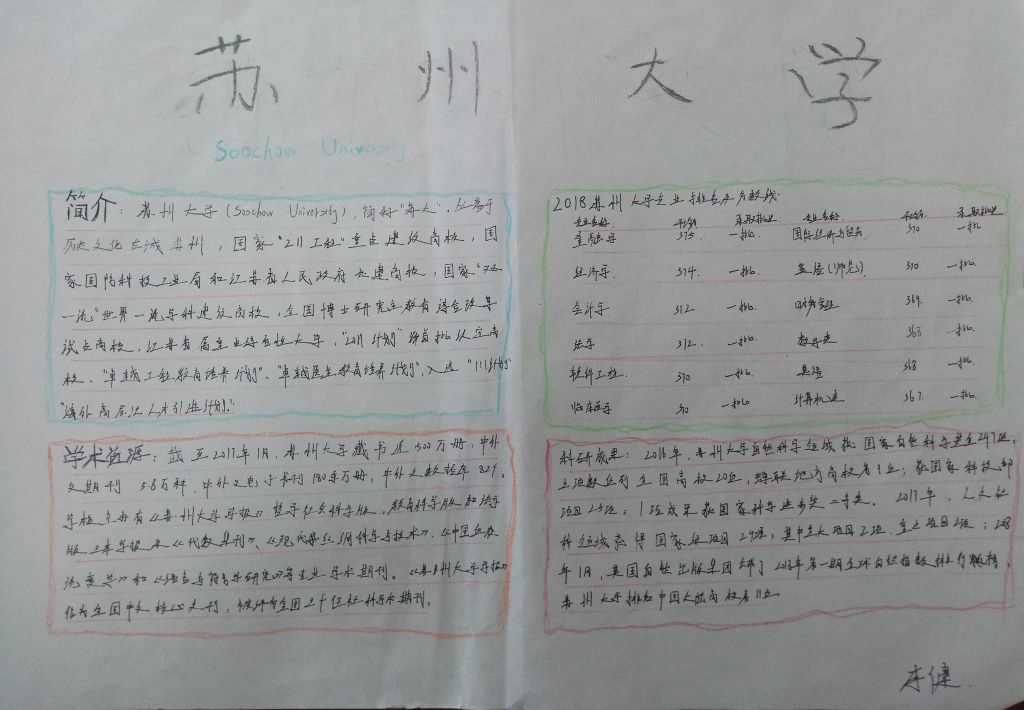 苏州大学
Soochow University
简介：苏州大学(Soochow University)，简称"苏大"，位于
历史文化名城苏州，国家"211工程"重点建设高校，国
家国防科技工业局和江苏省人民政府共建高校，国家"双
一流"世界一流学科建设高校，全国博士研究生教育综合改革
试点高校，江苏省属重点综合性大学，"2011计划"首批认定高
校、"卓越工程教育培养计划"、"卓越医生教育培养计划"，入选"111计划"
"海外高层次人才引进计划。"
学术资源：截至2017年1月，苏州大学藏书近500万册，中外
文期刊 万种，中外文电子书刊180余万册，中外文数据库82个，
学校主办有《苏州大学学报》哲学社会科学版、教育科学版和法学
版三本学报及《代数集刊》、《现代丝绸科学与技术》、《中国血液
流变学》和《语言与符号学研究》等专业学术期刊。《苏州大学学报》
作为全国中文核心文刊，被评为全国三十佳社科学术期刊。
2018苏州大学专业排名及分数线：
专业名称 平均分 录取批次 专业名称 平均分 录取批次
金融学 375 一批 国际经济与贸易 370 一批
经济学 374 一批 英语(师范) 370 一批
会计学 372 一批 369 一批
法学 372 一批 数学类 368 一批
软件工程 370 一批 英语 368 一批
临床医学 370 一批 计算机类 367 一批
科研成果：2016年，苏州大学自然科学领域获国家自然科学基金297项，
立项数位列全国高校20位，蝉联地方高校第1位；获国家科技部
项目 项；1项成果获国家科学进步奖二等奖。2017年，人文社
科领域获得国家级项目29项，其中重大项目2项，重点项目2项；2018
年1月，英国自然出版集团公布了2018年第一期全球自然指数排行榜，
苏州大学排名中国大陆高校第11位。
李健